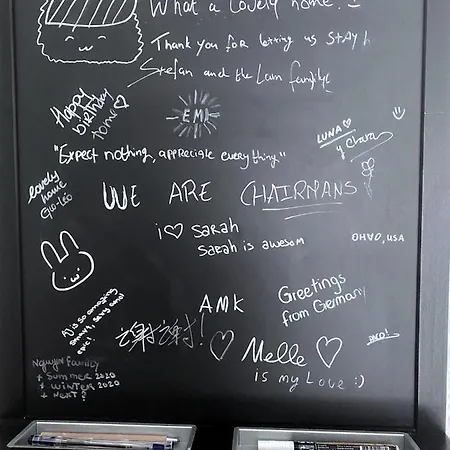 What a lovely home. :)
Thank you for letting us stay h
Stefan and the Lam family
Happy
birthday
to me ♡
EMI
LUNA ♡
y Clara
"Expect nothing, appreciate everything"
lovely
home
Gio-Leo
WE ARE CHAIRMANS
i ♡ SARAH
SARAH is awesom
OHAD, USA
AJ is so amazing
smart, sexy and
epic!
AMK
Greetings
from Germany
谢谢!
♡ Melle ♡
is my Love :)
Nguyen Family
+ SUMMER 2020
+ WINTER 2020
+ NEXT?